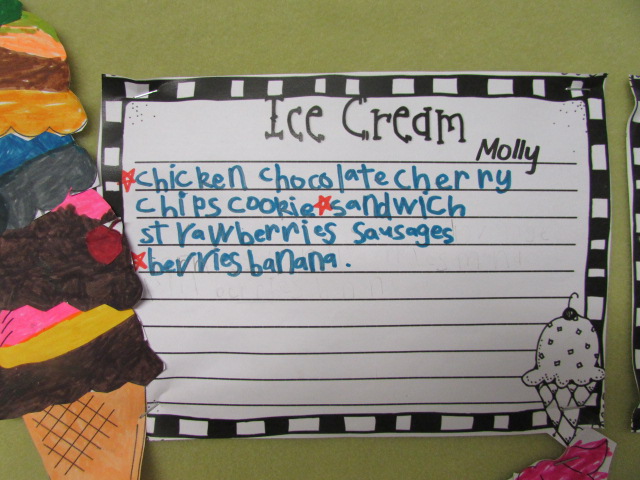 Ice Cream
Molly
chicken chocolate cherry
chips cookie sandwich
strawberries sausages
berries banana.